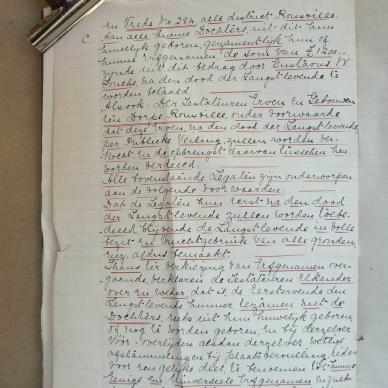 en Vrede No 294, alle district Rouxville.
C. Aan alle hunne Dochters, uit dit hun
huwelijk geboren, gezamentlijk hun of
hunne erfgenamen, de som van £1200.-
zijnde uit dit bedrag door Gustavus W
na den dood der Langstlevende te
worden betaald.
Alsook: Der Testateuren Erven en Gebouwen
in Dorpe Rouxville, onder voorwaarde
dat deze Erven, na den dood der Langstlevende
per Publieke Veiling zullen worden ver-
kocht en de opbrengst daarvan tusschen hen
worden verdeeld.
Alle bovenstaande Legaten zijn onderworpen
aan de volgende voorwaarden:
Dat de Legaten hun eerst na den dood
der Langstlevende zullen worden toebe-
deeld, blijvende de Langstlevende in volle
bezit en vruchtgebruik van alle gronden,
aldus bemaakt.
Thans ter verkiezing van Erfgenamen over-
gaande, verklaren de testateuren Elkander
over en weder, dat is de Eerststervende den
Langstlevende hunner, tezamen met de
Dochters, reeds uit hun huwelijk geboren,
of nog te worden geboren, en bij derzelver
vóór-overlijden alsdan derzelver wettige
afstammelingen bij plaatsvervulling, ieder
voor een gelijke deel, te benoemen
eenige en Universeele Erfgenamen